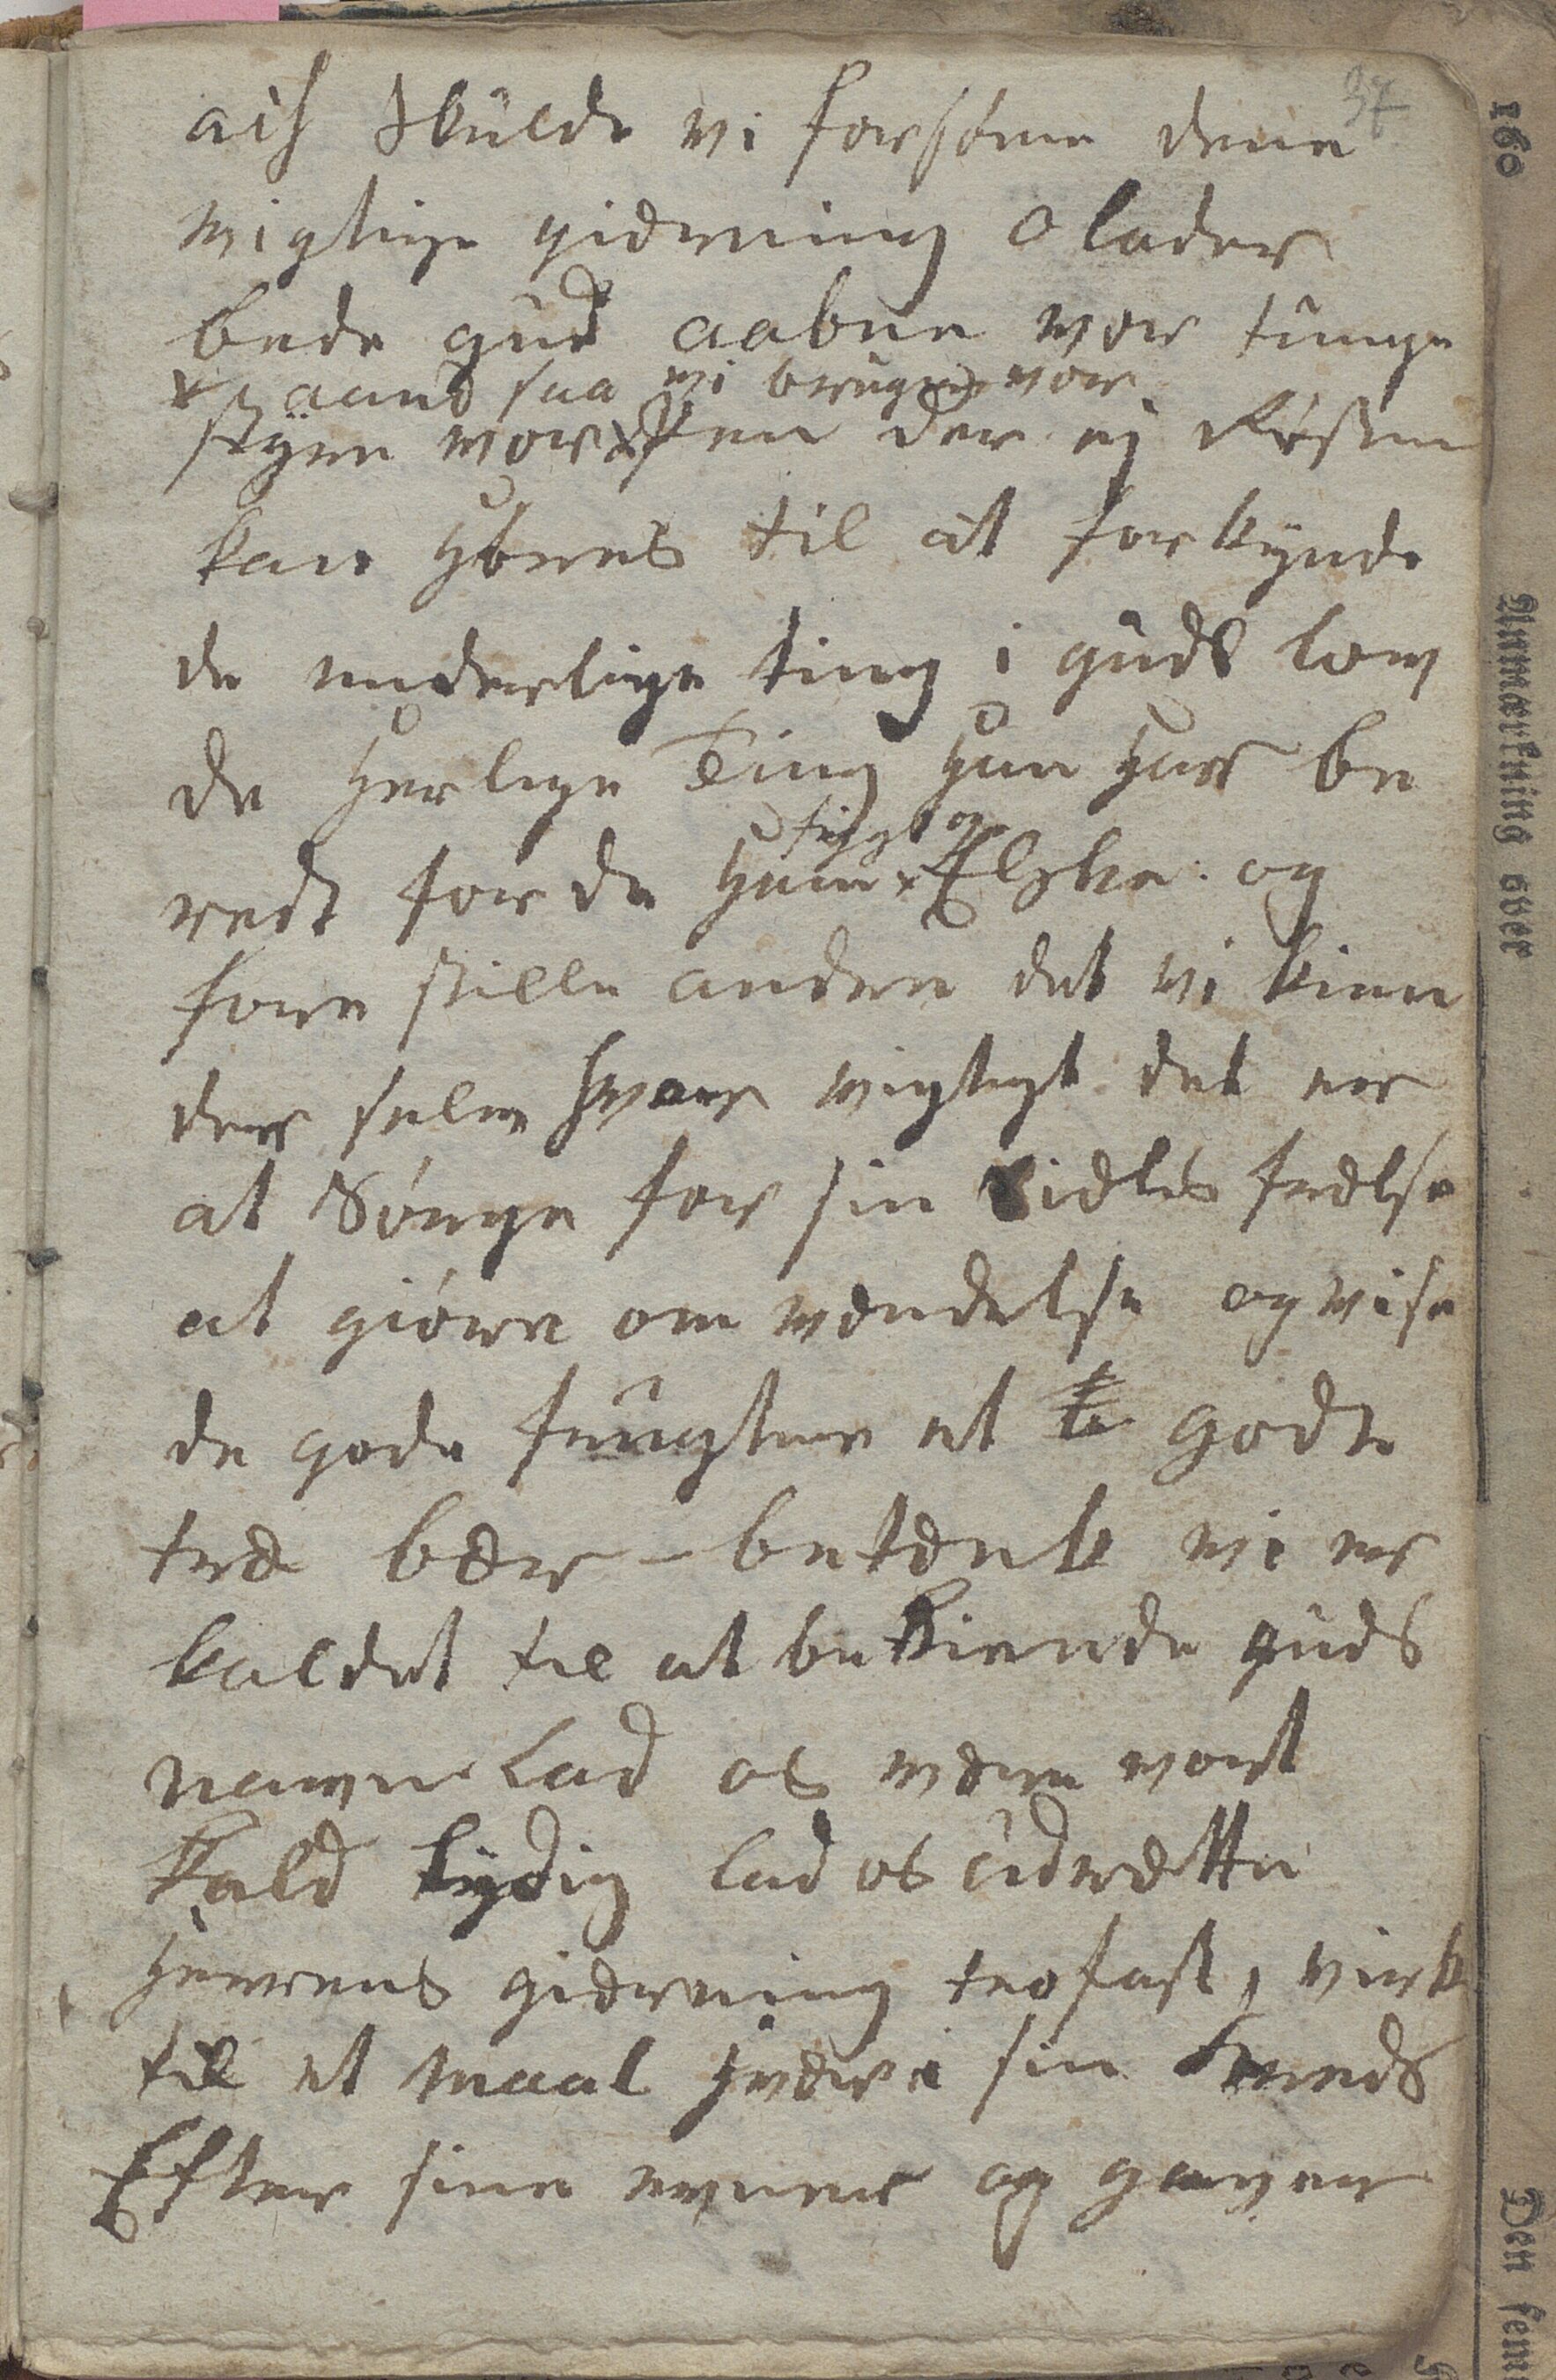 37
ach skulde vi forsöme dene
vigtige gierning o lader
bede gud aabne vor tunge
x aand saa vi bruge vor
styre vor x Pen der ej
kan höres til at forkynde
de underlige ting i guds lov
de herlige Ting han har be
frygt og
redt for de ham x Elske. og
fore stille andre det vi kien
der selv hvor vigtigt det er
at Sörge for sin Siæles frelse
at giöre om vendelse og vise
de gode frugter et godt
træ bær - betænk vi er
kaldet til at bekiende guds
navn Lad os være vort
kald lydig lad os udrætte
herrens gierning trofast, virk
til et maal hver i sin kreds
Efter sine evner og gaver
160
Anmærkning over
Den fem